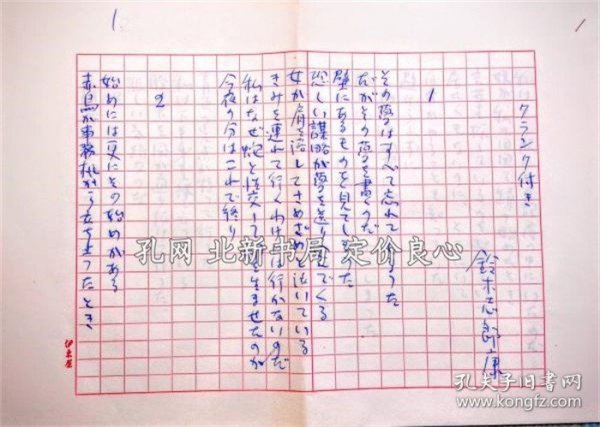 1.
クランク付き
鈴木志郎康
1
その夢はすべて忘れてしまった
だがその夢を書くのだ
壁にあるものを見てしまった
恐しい謀略が夢を送りこんでくる
女が肩を落してさめざめと泣いている
きみを連れて行くわけには行かないのだ
私はなぜ蛇と性交して を生ませたのか
今夜の分はこれで終り
2
始めには更にその始めがある
赤鳥が事務机から立ち上ったとき
伊東屋
孔网 北新书局 定价良心
孔夫子旧书网
www.kongfz.com